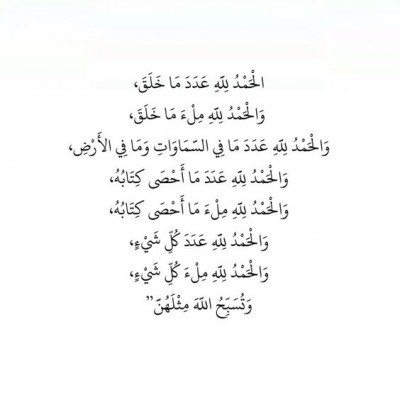 الْحَمْدُ لِلَّهِ عَدَدَ مَا خَلَقَ،
وَالْحَمْدُ لِلَّهِ مِلْءَ مَا خَلَقَ،
وَالْحَمْدُ لِلَّهِ عَدَدَ مَا فِي السَّمَاوَاتِ وَمَا فِي الأَرْضِ،
وَالْحَمْدُ لِلَّهِ عَدَدَ مَا أَحْصَى كِتَابُهُ،
وَالْحَمْدُ لِلَّهِ مِلْءَ مَا أَحْصَى كِتَابُهُ،
وَالْحَمْدُ لِلَّهِ عَدَدَ كُلِّ شَيْءٍ،
وَالْحَمْدُ لِلَّهِ مِلْءَ كُلِّ شَيْءٍ،
وَتُسَبِّحُ اللهَ مِثْلَهُنَّ”